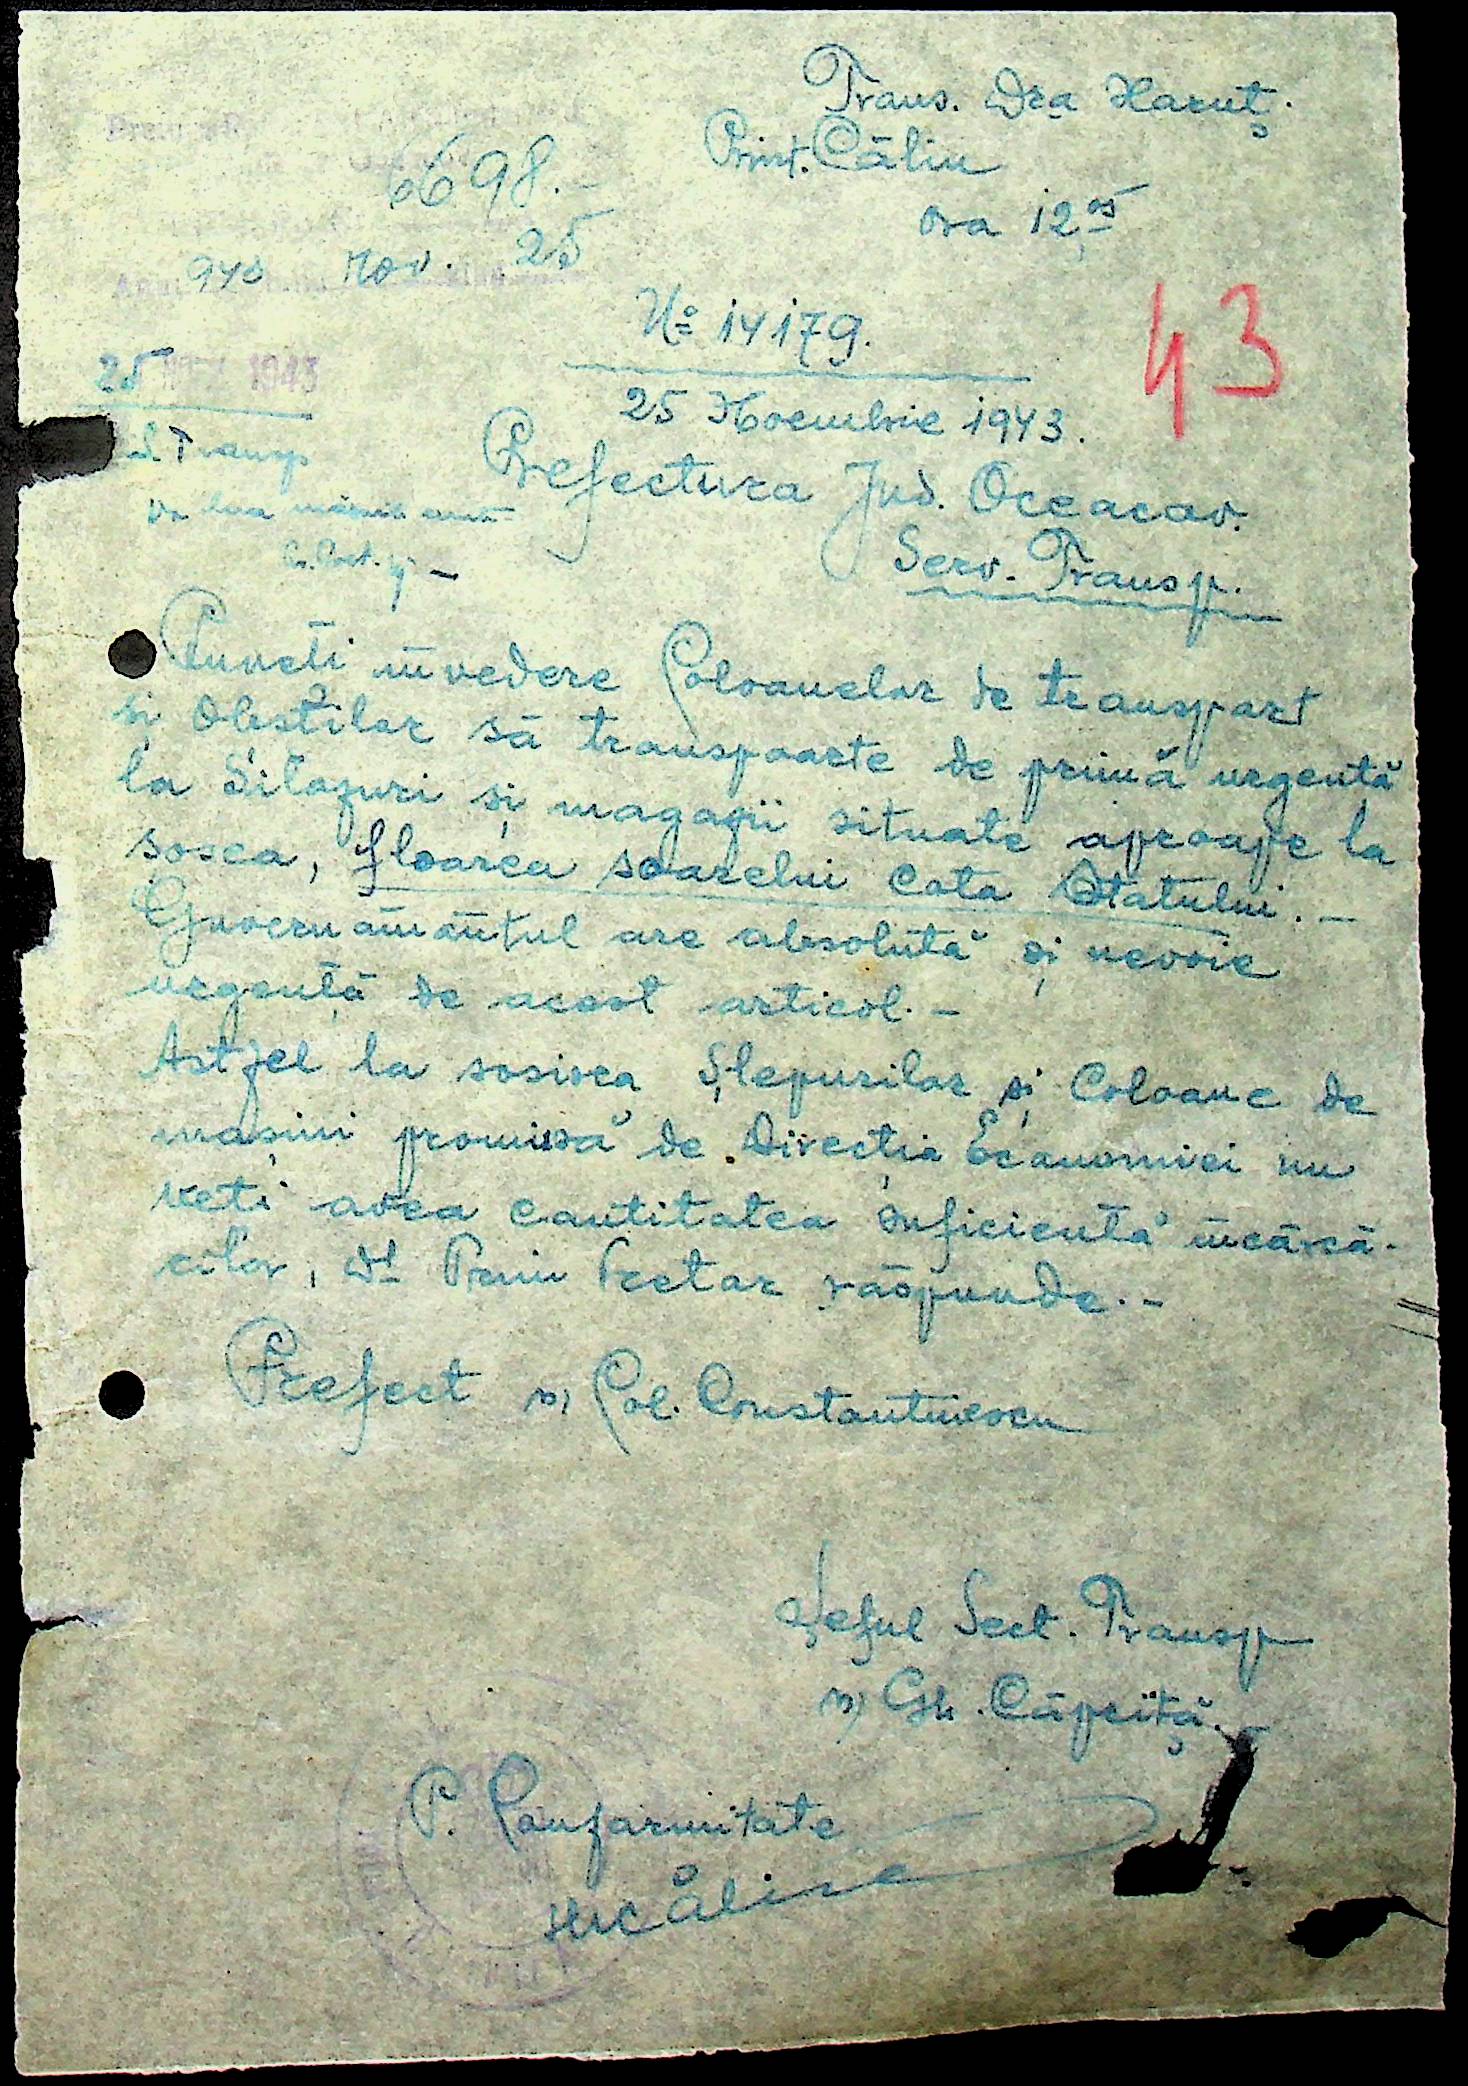 Trans. Dra Haruț.
Prim. Călin
ora 12,05
6698.-
943 Nov. 25
No 14179.
43
25 1943
25 Noembrie 1943.
S. Transp
Prefectura Jud. Oceacov.
Serv. Transp.
Puneti in vedere Coloanelor de transport
si Obștilor să transpoarte de primă urgentă
la Silozuri și magazii situate aproape la
sosea, floarea soarelui Cota Statului.-
Guvernământul are absolută și nevoie
urgență de acest articol.-
Astfel la sosirea Șlepurilor și Coloane de
mașini promisă de Direcția Economiei nu
veti avea cantitatea suficientă încărcă-
rilor, Dl Prim Pretor răspunde.-
Prefect ss) Col. Constantinescu
Șeful Sect. Transp
ss) Gh. Căpriță.
P. Conformitate
Călin